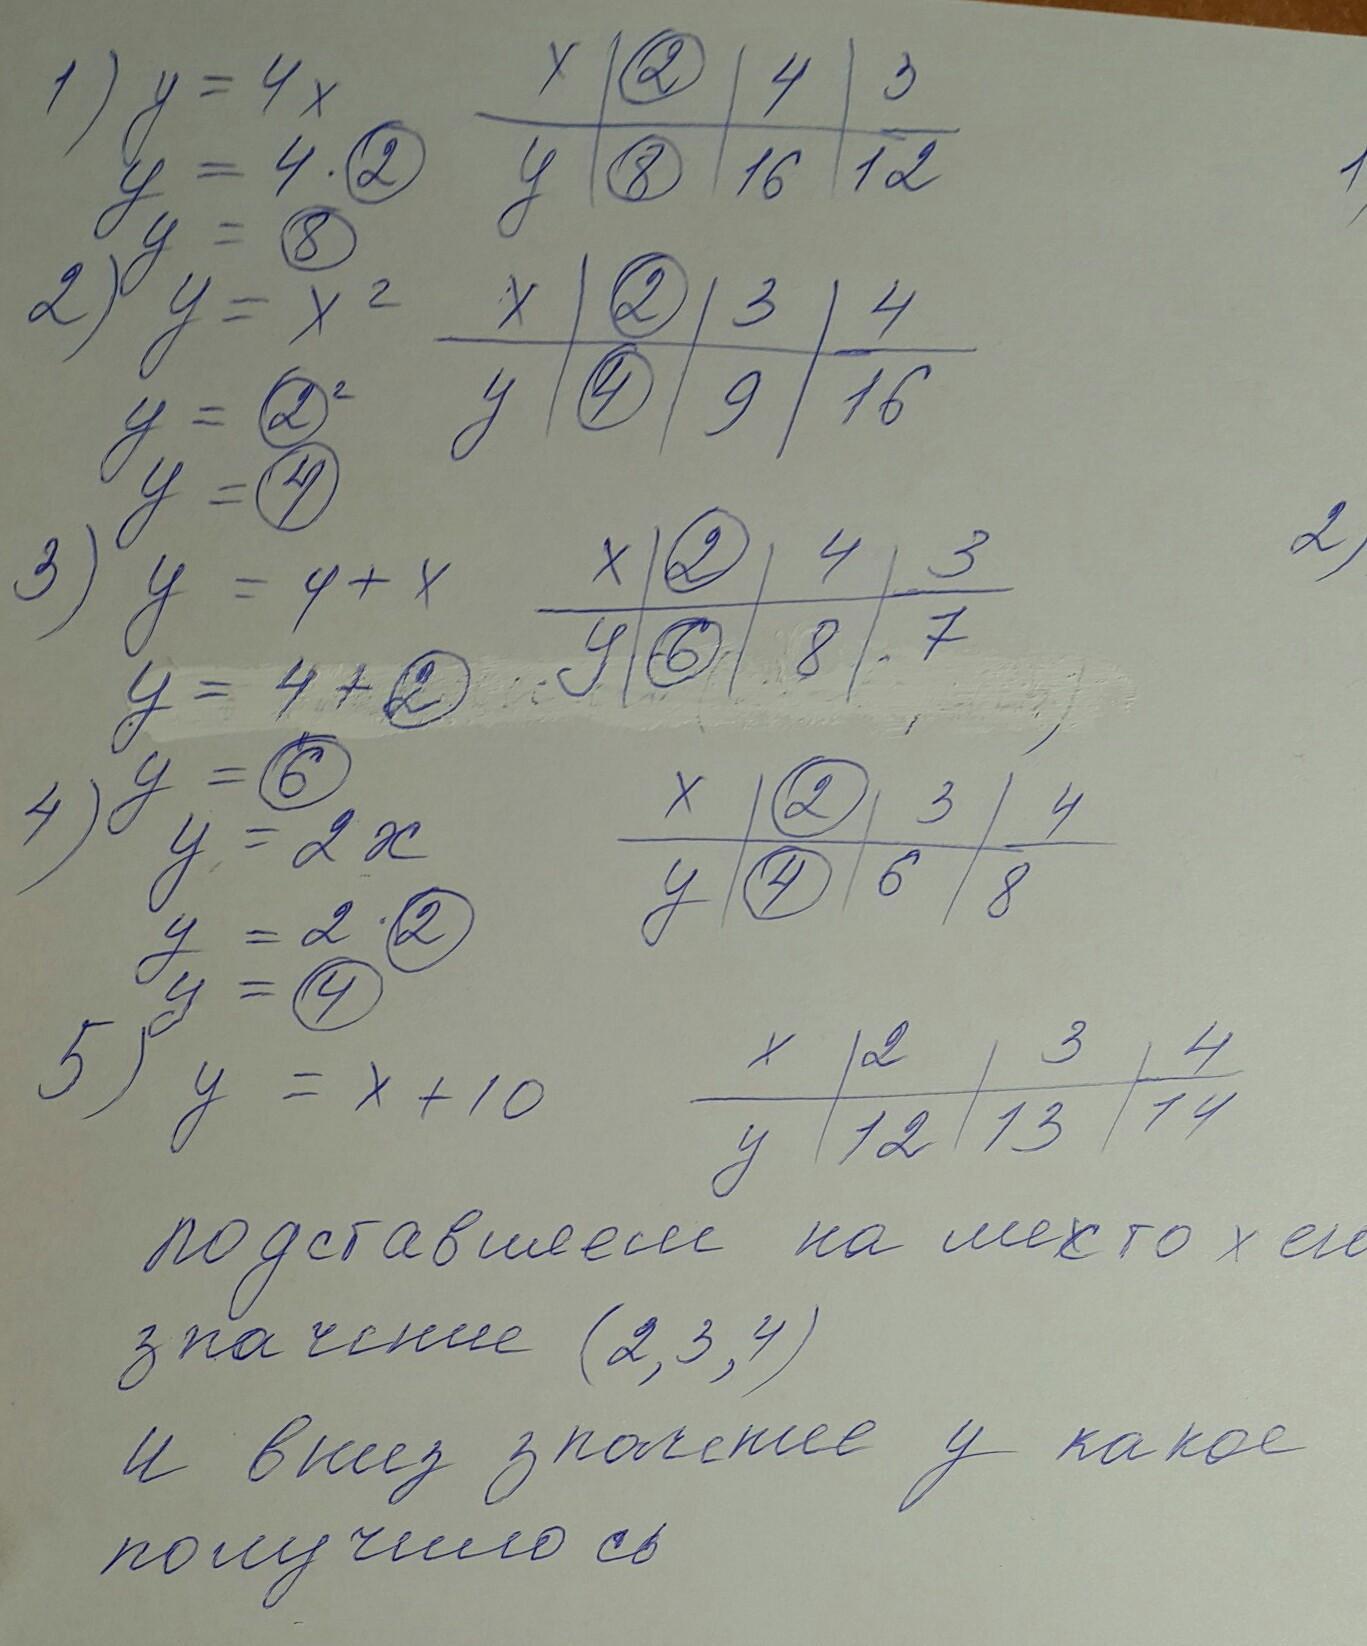 1) y = 4x x | 2 | 4 | 3
y = 4 · 2 y | 8 | 16 | 12
y = 8
2) y = x² x | 2 | 3 | 4
y = 2² y | 4 | 9 | 16
y = 4
3) y = 4 + x x | 2 | 4 | 3
y = 4 + 2 y | 6 | 8 | 7
y = 6
4) y = 2x x | 2 | 3 | 4
y = 2 · 2 y | 4 | 6 | 8
y = 4
5) y = x + 10 x | 2 | 3 | 4
y | 12 | 13 | 14
подставляем на место x
значение (2, 3, 4)
и вниз значение y какое
получилось
1)
2)